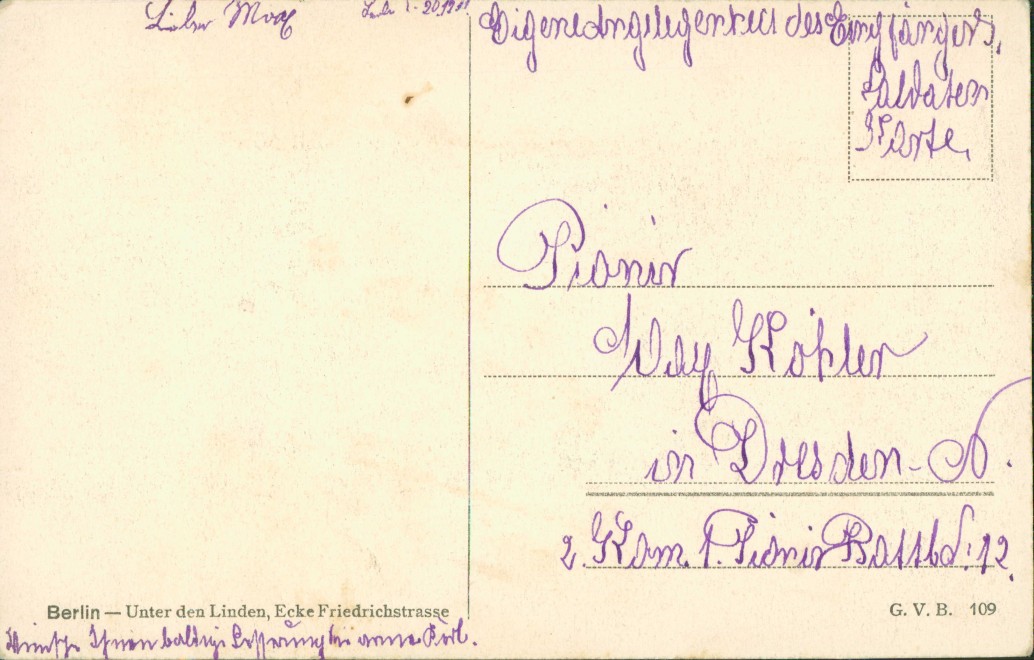 Lieber Max
Eigene Angelegenheit des Empfängers,
Soldaten
Karte,
Pionir
Köhler
in Dresden-N.
2. Kom. 1. Pionir Battl. No: 12.
Berlin — Unter den Linden, Ecke Friedrichstrasse
G. V. B. 109
Wünsche Ihnen baldige Besserung